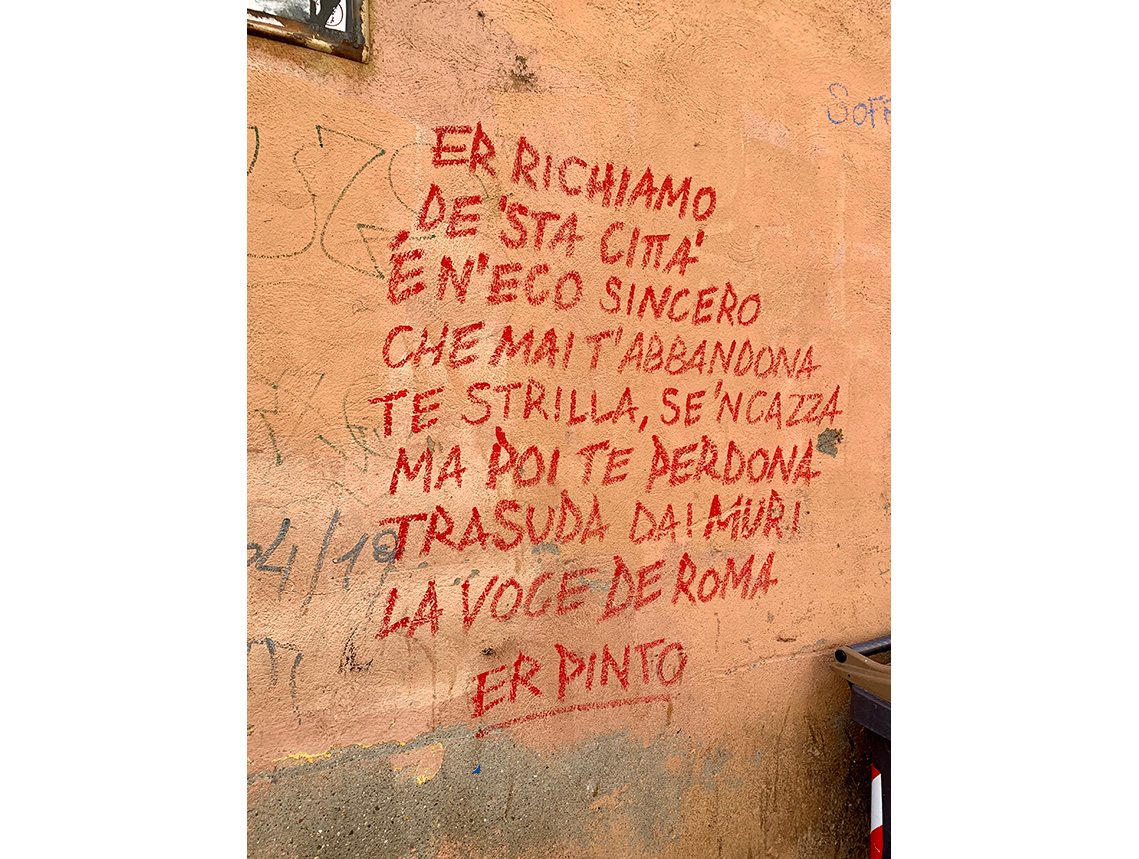 ER RICHIAMO
DE 'STA CITTA'
É N'ECO SINCERO
CHE MAI T'ABBANDONA
TE STRILLA, SE 'NCAZZA
MA POI TE PERDONA
TRASUDA DAI MURI
LA VOCE DE ROMA
ER PINTO
SOFF
04/19